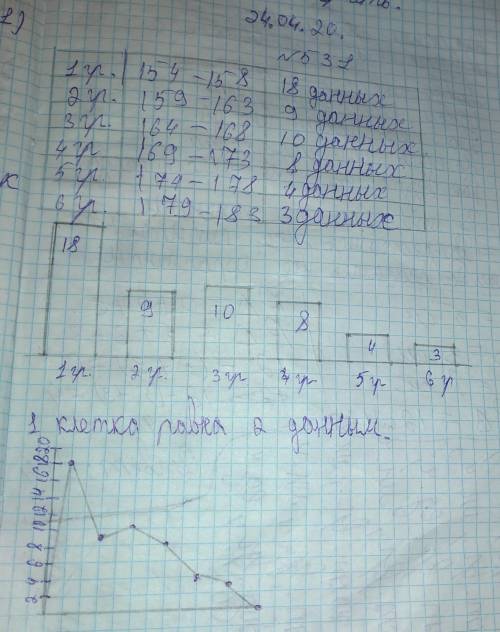 24.04.20.
№531
1 гр. 154 - 158 18 данных
2 гр. 159 - 163 9 данных
3 гр. 164 - 168 10 данных
4 гр 169 - 173 8 данных
5 гр. 174 - 178 4 данных
6 гр. 179 - 183 3 данных
18
9
10
8
4
3
1 гр. 2 гр. 3 гр 4 гр 5 гр 6 гр
1 клетка равна 2 данным.
20
18
16
14
12
10
8
6
4
2